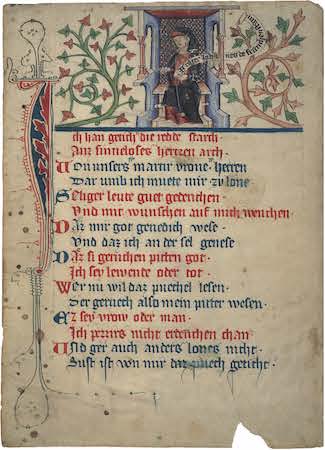 Ich han gericht die rede starch
Auz sinneloses hertzen arch.
Von unsers martir vrone herren
Dar umb ich muete mir zu lone
Seliger leute guet gedenchen
Vnd mit wunschen auf mich wenchen
Daz mir got genedich wese.
Vnd daz ich an der sel genese
Daz si geruchen piten got.
Ich sey lewende oder tot
Wer nu wil daz puechel lesen
Der geruech also mein pitter wesen.
Ez sey vrow oder man.
Ich nicht erdenchen chan
Vnd ger auch anders lones nicht.
Sust ist von mir daz puech geticht.